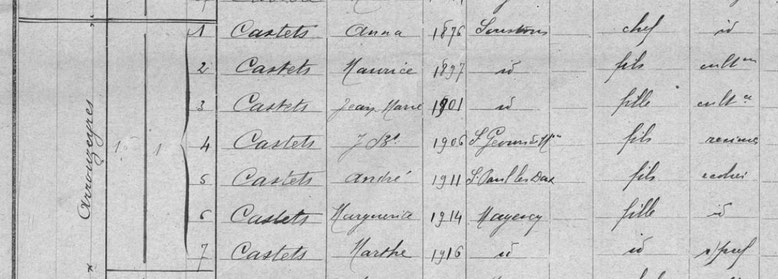 Arrouzeyres
1 1
1 Castets Anna 1876 Soustons chef id
2 Castets Maurice 1897 id fils cult
3 Castets Jean Marie 1901 id fille cult
4 Castets J Bte 1906 St Geours de M fils
5 Castets André 1911 St Paul les Dax fils
6 Castets Marguerite 1914 Magescq fille id
7 Castets Marthe 1916 id id